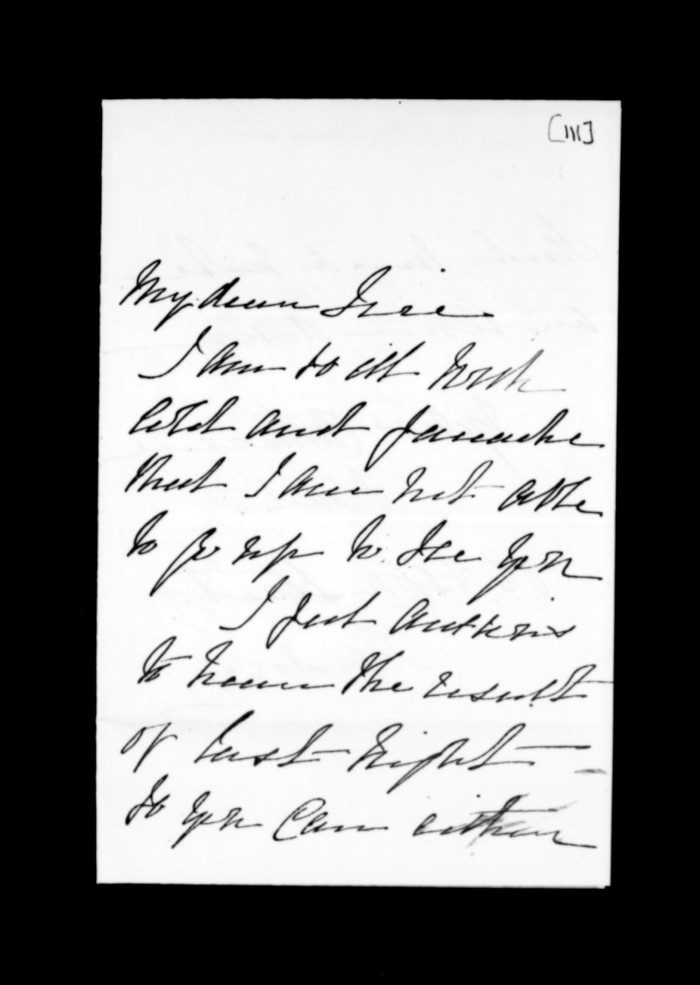 [111]
My dear Sir
I am so ill with
cold and faceache
that I am not able
to go up to see you
I feel anxious
to know the result
of last night —
so you can either